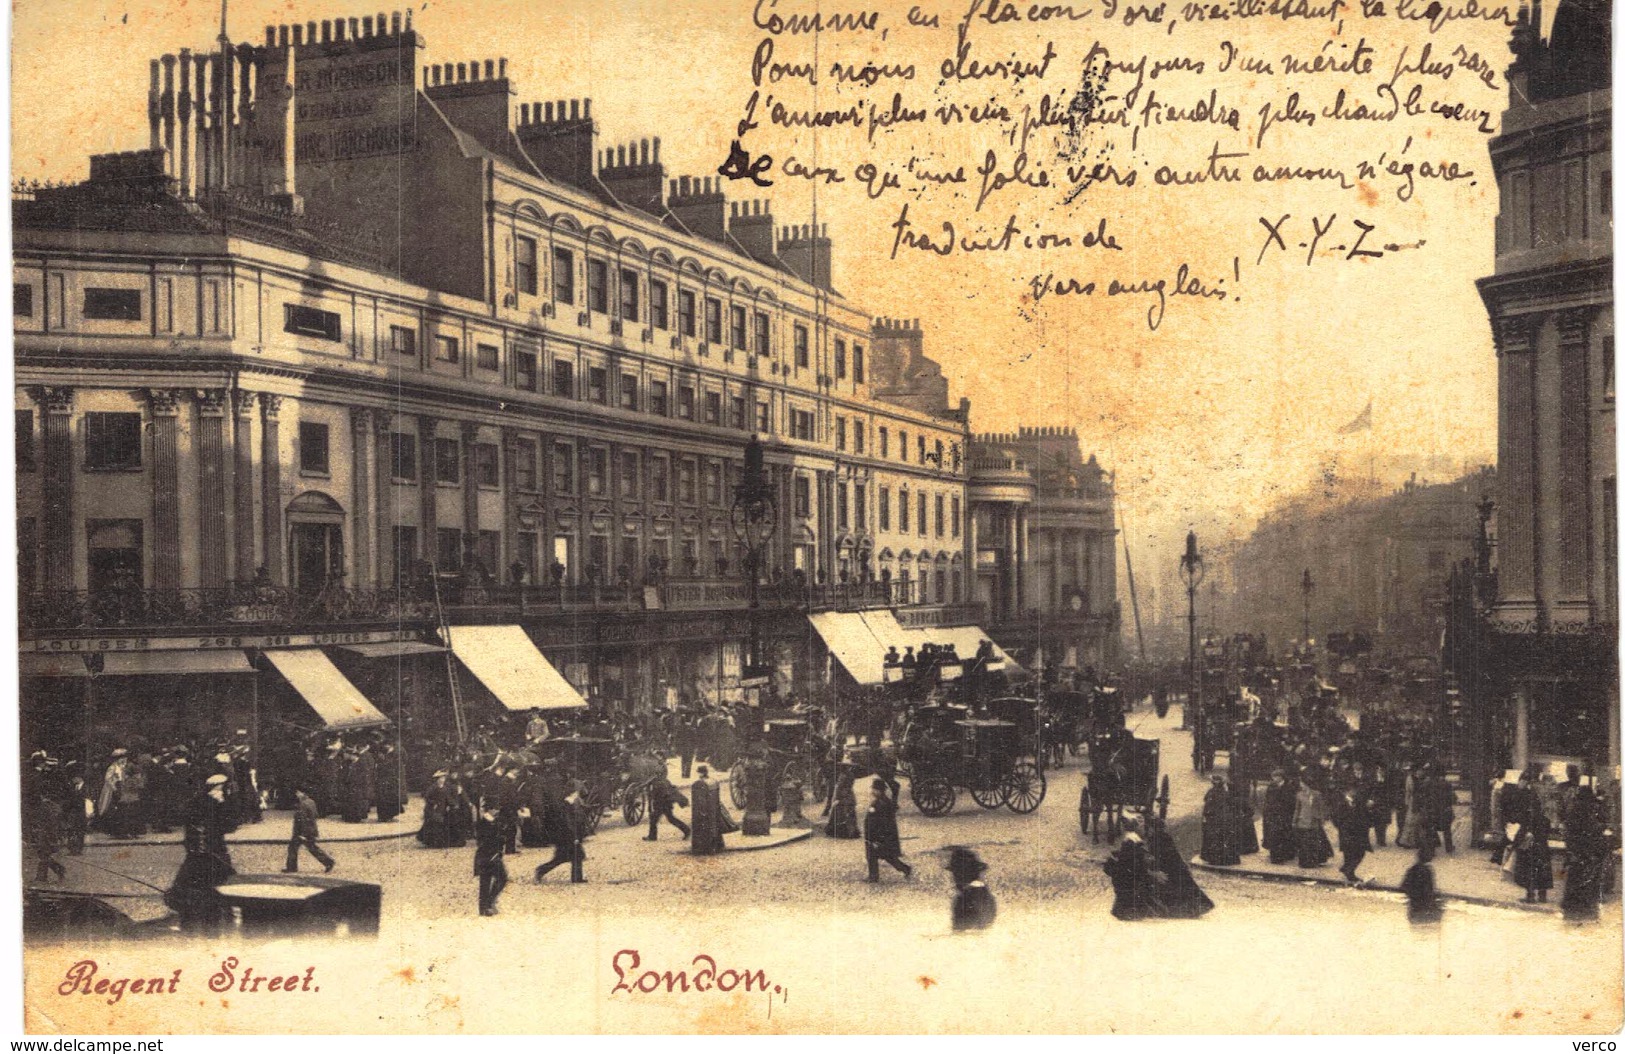 Comme, en flacon doré, vieillissant, la liqueur
Pour nous devient toujours d'un mérite plus rare
L'amour plus vieux, plus sûr, tiendra plus chaud le coeur
De ceux qu'une folie vers autre amour n'égare.
traduction de X.Y.Z
vers anglais!
PETER ROBINSON'S
GENERAL
MOURNING WAREHOUSE
PETER ROBINSON
LOUISE
266
266
LOUISE
Regent Street.
London.
www.delcampe.net
verco